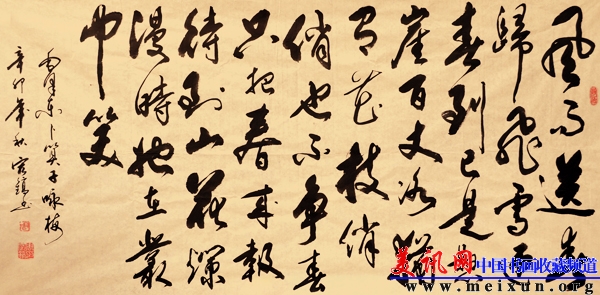 風雨送春
歸飛雪迎
春到已是懸
崖百丈冰猶
有花枝俏
俏也不争春
只把春来報
待到山花爛
漫時她在叢
中笑
毛泽东卜算子咏梅
辛卯年秋 书
美讯网 中国书画收藏频道
www.meixun.org